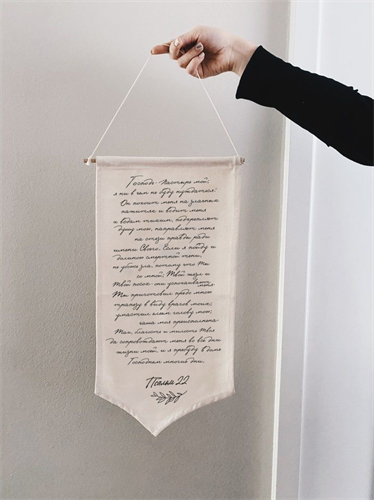 Господь - Пастырь мой;
я ни в чем не буду нуждаться:
Он покоит меня на злачных
пажитях и водит меня
к водам тихим, подкрепляет
душу мою, направляет меня
на стези правды ради
имени Своего. Если я пойду и
долиною смертной тени,
не убоюсь зла, потому что Ты
со мной; Твой жезл и
Твой посох - они успокаивают меня
Ты приготовил предо мною
трапезу в виду врагов моих;
умастил елеем голову мою;
чаша моя преисполнена.
Так, благость и милость Твоя
да сопровождают меня во все дни
жизни моей, и я пребуду в доме
Господнем многие дни.
Псалом 22